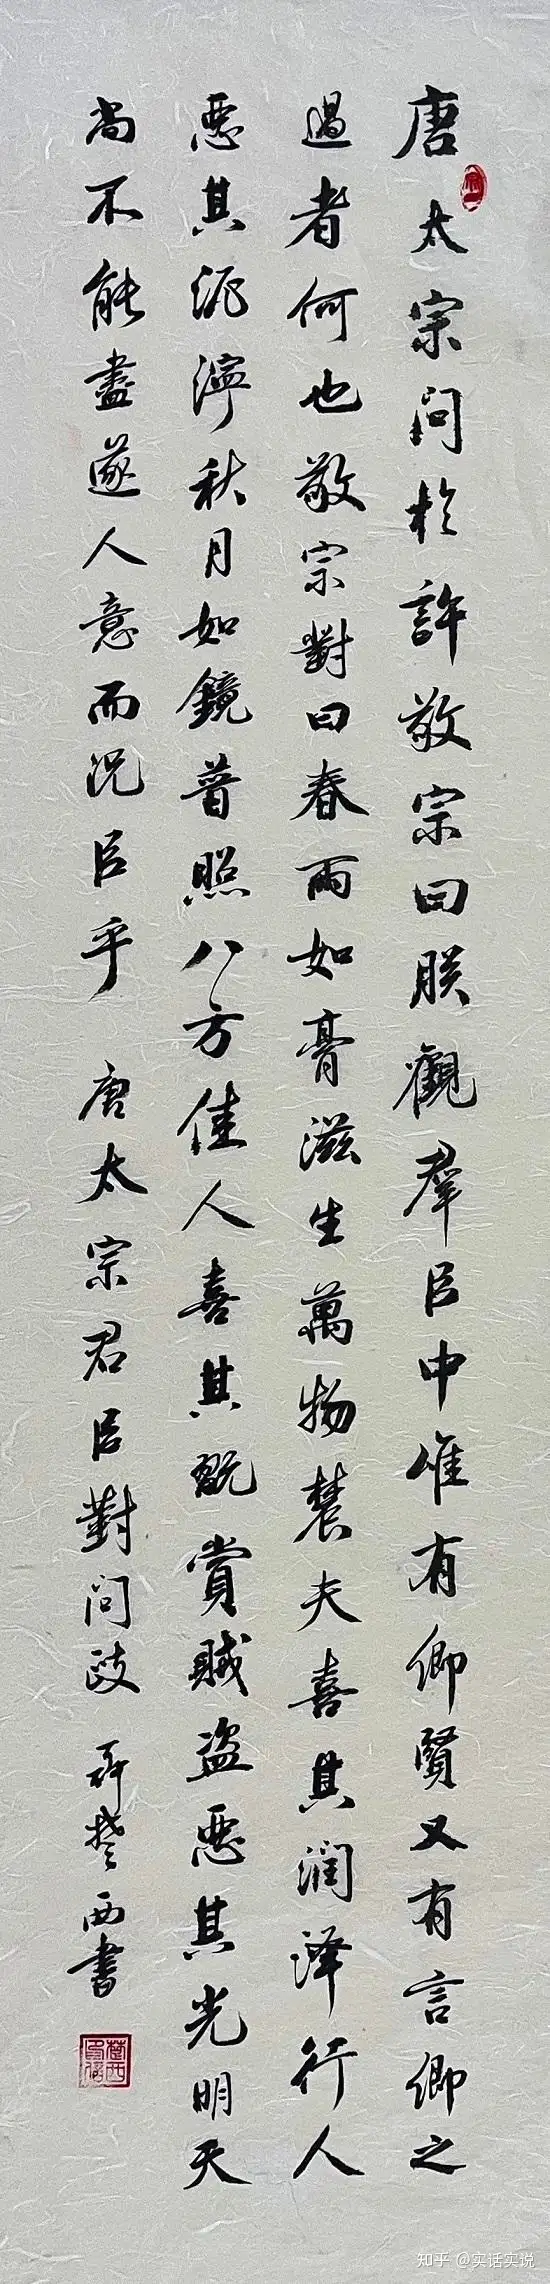 唐太宗問於許敬宗曰朕觀羣臣中唯有卿賢又有言卿之
過者何也敬宗對曰春雨如膏滋生萬物農夫喜其润澤行人
惡其泥濘秋月如鏡普照八方佳人喜其既賞賊盗惡其光明天
尚不能盡遂人意而況臣乎 唐太宗君臣對問
西書
知乎 @实话实说